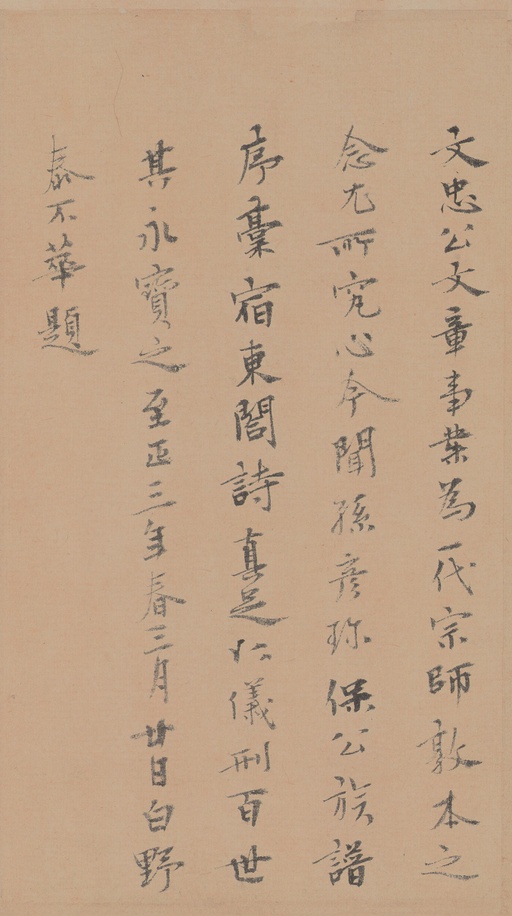 文忠公文章事業為一代宗師敦本之
念尤所究心今聞孫彦珎保公族譜
序藁宿東閤詩真足以儀刑百世
其永寶之至正三年春三月廿日白野
泰不華題